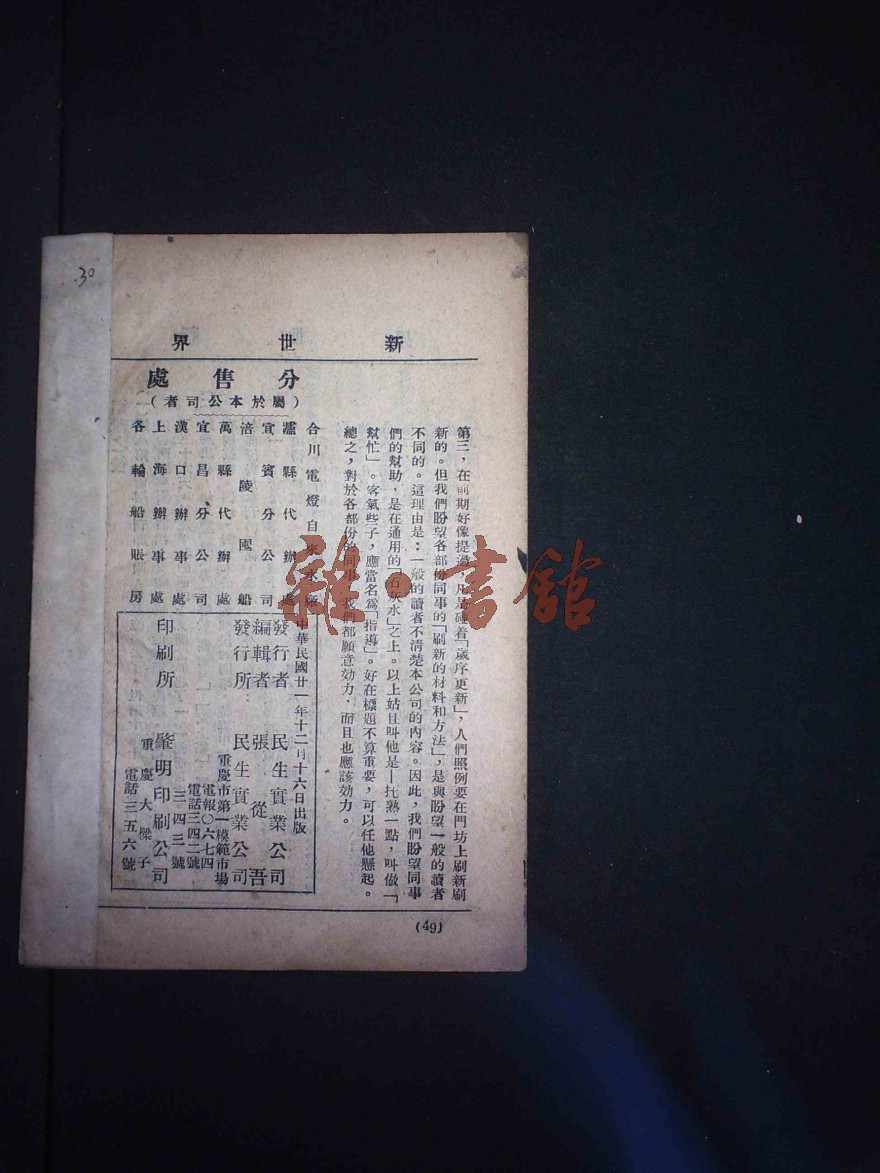 新世界
第三，在前期好像提過，凡是碰着「歲序更新」，人們照例要在門坊上刷新刷
新的。但我們盼望各部份同事的「刷新的材料和方法」，是與盼望一般的讀者
不同的。這理由是：一般的讀者不清楚本公司的內容。因此，我們盼望同事
們的幫助，是在通用的「石灰水」之上。以上姑且叫他是—托熟一點，叫做「
幫忙」。客氣些子，應當名爲「指導」。好在標題不算重要，可以任他懸起。
總之，對於各部份的同事，我們都願意効力，而且也應該効力。
分售處
（屬於本公司者）
合川電燈自來水廠
瀘縣代辦處
宜賓分公司
涪陵囤船
萬縣代辦處
宜昌分公司
漢口辦事處
上海辦事處
各輪船賬房
中華民國廿一年十二月十六日出版
發行者：民生實業公司
編輯者：張從吾
發行所：民生實業公司
重慶市第一模範市場
電報〇六七四
電話三四二號
三四三號
印刷所 肇明印刷公司
重慶大樑子
電話三五六號
(49)
30
雜·書館